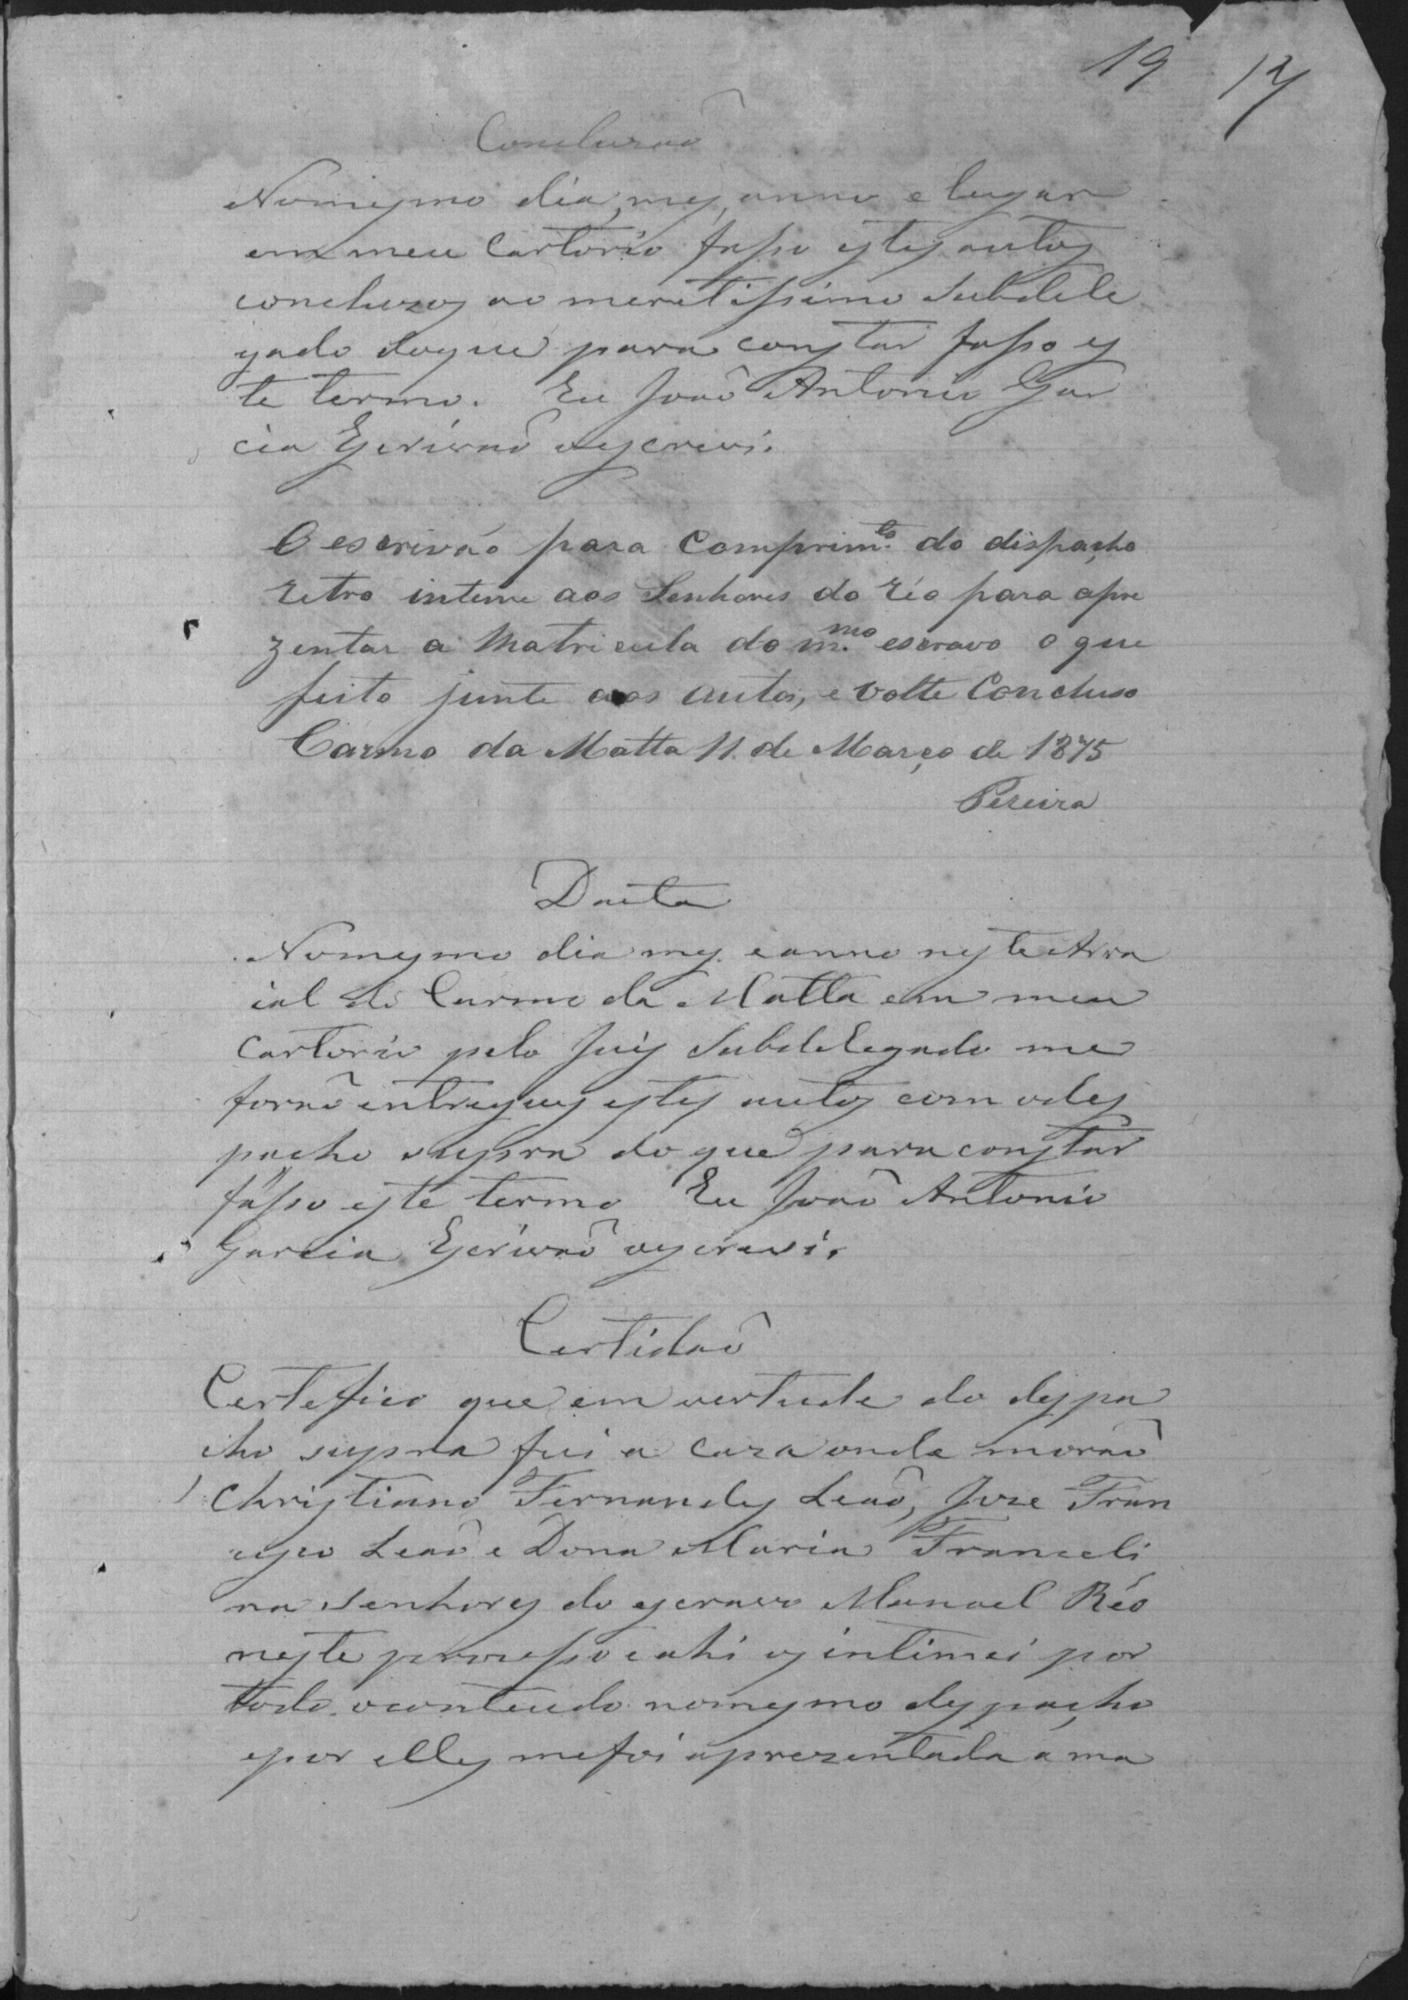 19 17
Concluzaõ
No mesmo dia, mes, anno e lugar
em meu Cartorio fasso estes autos
concluzos ao meretissimo Subdele
gado doque para constar fasso es
te termo. Eu Joaõ Antonio Gar
cia Escrivaõ o escrevi.
O escrivão para comprim.to do dispacho
retro intime aos Senhores do réo para apre
zentar a Matricula do m.mo escravo o que
feito junte aos autos, e volte Concluso
Carmo da Matta 11 de Março de 1875
Pereira
Dacta
No mesmo dia mes e anno neste Arra
ial do Carmo da Matta em meu
Cartorio pelo Juis Subdelegado me
foraõ entregues estes autos com o des
pacho supra do que para constar
fasso este termo Eu Joaõ Antonio
Garcia Escrivaõ o escrevi.
Certidaõ
Certefico que em vertude do despa
cho supra fui a caza onde moraõ
Christiano Fernandes Leaõ, Joze Fran
cisco Leaõ e Dona Maria Franceli
na Senhores do escravo Manoel Réo
neste prosesso e ahi os intimei por
todo o conteudo no mesmo despacho
e por elles me foi aprezentada a ma